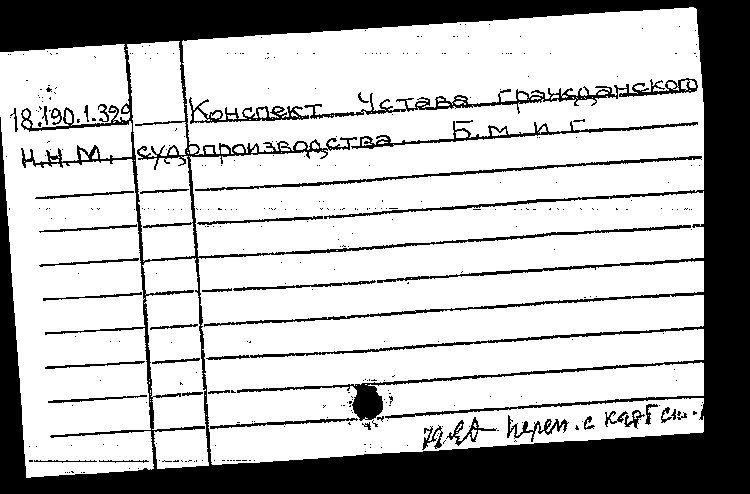 18.190.1.329 Конспект Устава гражданского
Н.Н.М. судопроизводства. Б. м. и г.
перен. с